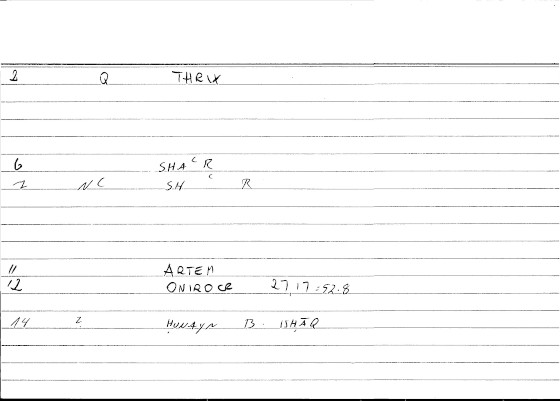 2 Q THRIX
6 SHAᶜR
7 NC SH ᶜ R
11 ARTEM
12 ONIROCR 27,17:52.8
14 2 ḤUNAYN B. ISḤĀQ